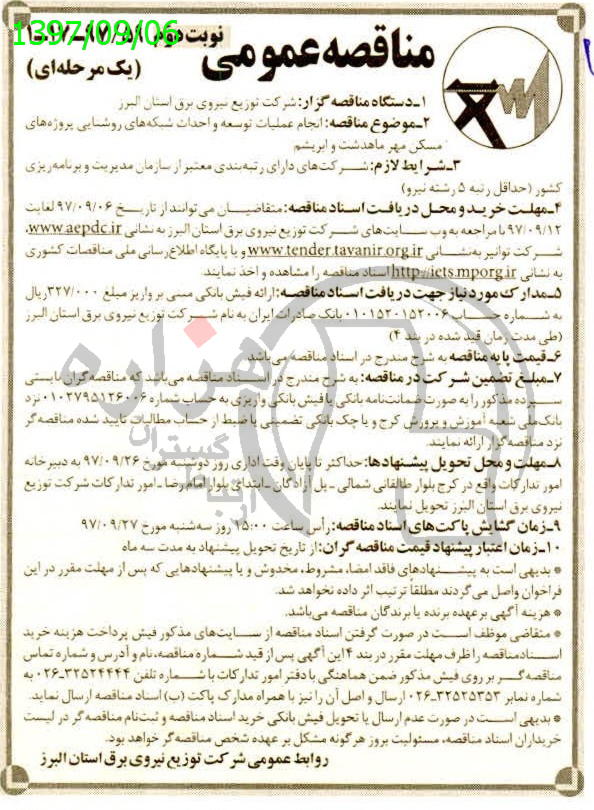 1397/09/06
نوبت دوم
مناقصه عمومی
(یک مرحله‌ای)
۱ـ دستگاه مناقصه گزار: شرکت توزیع نیروی برق استان البرز
۲ـ موضوع مناقصه: انجام عملیات توسعه و احداث شبکه‌های روشنایی پروژه‌های
مسکن مهر ماهدشت و ابریشم
۳ـ شرایط لازم: شرکت‌های دارای رتبه‌بندی معتبر از سازمان مدیریت و برنامه‌ریزی
کشور (حداقل رتبه ۵ رشته نیرو)
۴ـ مهلت خرید و محل دریافت اسناد مناقصه: متقاضیان می‌توانند از تاریخ ۹۷/۰۹/۰۶ لغایت
۹۷/۰۹/۱۲ با مراجعه به وب سایت‌های شرکت توزیع نیروی برق استان البرز به نشانی www.aepdc.ir،
شرکت توانیر به نشانی www.tender.tavanir.org.ir و یا پایگاه اطلاع‌رسانی ملی مناقصات کشوری
به نشانی http://iets.mporg.ir اسناد مناقصه را مشاهده و اخذ نمایند.
۵ـ مدارک مورد نیاز جهت دریافت اسناد مناقصه: ارائه فیش بانکی مبنی بر واریز مبلغ ۳۲۷/۰۰۰ ریال
به شماره حساب ۰۱۰۱۵۲۰۱۵۲۰۰۶ بانک صادرات ایران به نام شرکت توزیع نیروی برق استان البرز
(طی مدت زمان قید شده در بند ۴)
۶ـ قیمت پایه مناقصه به شرح مندرج در اسناد مناقصه می‌باشد
۷ـ مبلغ تضمین شرکت در مناقصه: به شرح مندرج در اسناد مناقصه می‌باشد که مناقصه‌گران بایستی
سپرده مذکور را به صورت ضمانت‌نامه بانکی یا فیش بانکی واریزی به حساب شماره ۰۱۰۲۷۹۵۱۲۶۰۰۶ نزد
بانک ملی شعبه آموزش و پرورش کرج و یا چک بانکی تضمینی یا ضبط از حساب مطالبات تایید شده مناقصه‌گر
نزد مناقصه‌گزار ارائه نمایند.
۸ـ مهلت و محل تحویل پیشنهادها: حداکثر تا پایان وقت اداری روز دوشنبه مورخ ۹۷/۰۹/۲۶ به دبیرخانه
امور تدارکات واقع در کرج بلوار طالقانی شمالی ـ پل آزادگان ـ ابتدای بلوار امام رضا ـ امور تدارکات شرکت توزیع
نیروی برق استان البرز تحویل نمایند.
۹ـ زمان گشایش پاکت‌های اسناد مناقصه: رأس ساعت ۱۵:۰۰ روز سه‌شنبه مورخ ۹۷/۰۹/۲۷
۱۰ـ زمان اعتبار پیشنهاد قیمت مناقصه گران: از تاریخ تحویل پیشنهاد به مدت سه ماه
* بدیهی است به پیشنهادهای فاقد امضا، مشروط، مخدوش و یا پیشنهادهایی که پس از مهلت مقرر در این
فراخوان واصل می‌گردند مطلقاً ترتیب اثر داده نخواهد شد.
* هزینه آگهی بر عهده برنده یا برندگان مناقصه می‌باشد.
* متقاضی موظف است در صورت گرفتن اسناد مناقصه از سایت‌های مذکور فیش پرداخت هزینه خرید
اسناد مناقصه را ظرف مهلت مقرر در بند ۴ این آگهی پس از قید شماره مناقصه، نام و آدرس و شماره تماس
مناقصه‌گر بر روی فیش مذکور ضمن هماهنگی با دفتر امور تدارکات با شماره تلفن ۳۲۵۲۴۴۴۴ـ۰۲۶ به
شماره نمابر ۳۲۵۲۵۳۵۳ـ۰۲۶ ارسال و اصل آن را نیز با همراه مدارک پاکت (ب) اسناد مناقصه ارسال نماید.
* بدیهی است در صورت عدم ارسال یا تحویل فیش بانکی خرید اسناد مناقصه و ثبت‌نام مناقصه‌گر در لیست
خریداران اسناد مناقصه، مسئولیت بروز هرگونه مشکل بر عهده شخص مناقصه‌گر خواهد بود.
روابط عمومی شرکت توزیع نیروی برق استان البرز